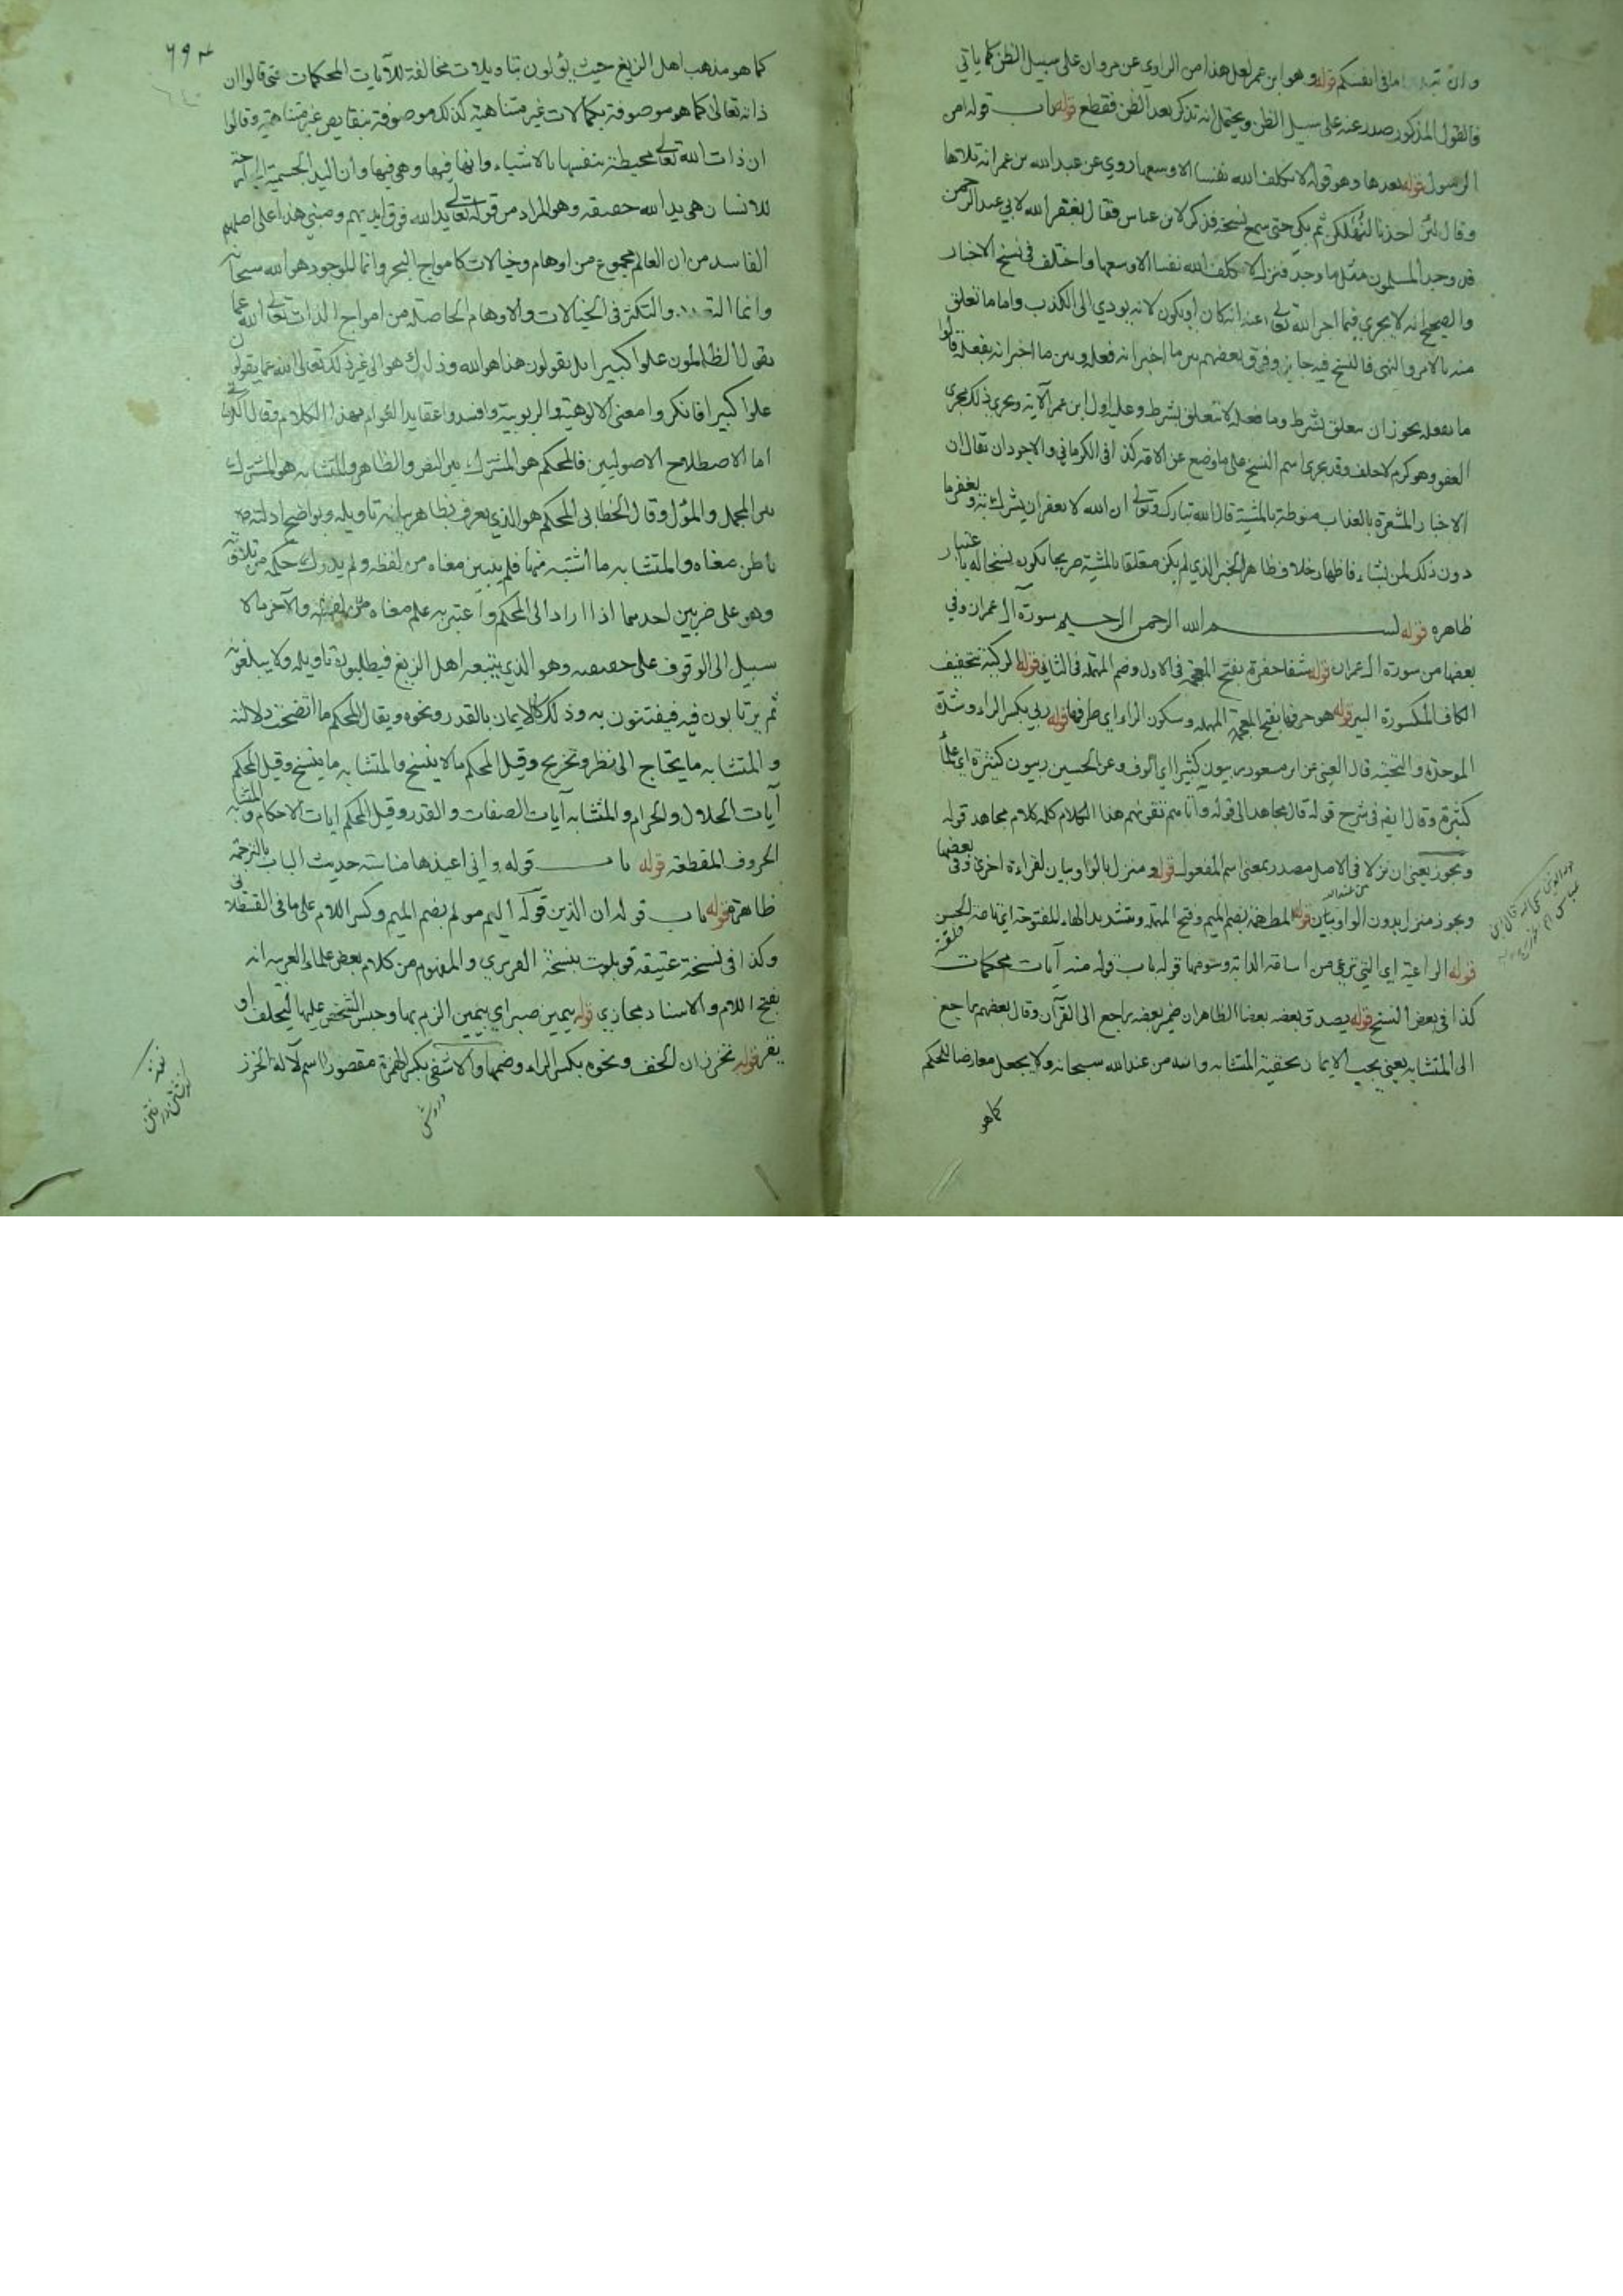 وان تبدوا ما فى انفسكم قوله وهو ابن عمر لعل هذا من الراوى عن مروان على سبيل الظن كما ياتي
فالقول المذكور صدر عنه على سبيل الظن ويحتمل انه تذكر بعد الظن فقطع قوله باب قوله امن
الرسول قوله بعدها وهو قوله لا يكلف الله نفسا الا وسعها روي عن عبد الله بن عمر انه تلاها
وقال لئن اخذنا لنهلكن ثم بكى حتى سمع نشيجه فذكر لابن عباس فقال يغفر الله لابي عبد الرحمن
قد وجد المسلمون مثل ما وجد فنزل لا يكلف الله نفسا الا وسعها واختلف فى نسخ الاخبار
والصحيح انه لا يجري فيما اخبر الله تعالى عنه انه كان او يكون لانه يودي الى الكذب واما ما تعلق
منه بالامر والنهى فالنسخ فيه جايز وفرق بعضهم بين ما اخبر انه فعله وبين ما اخبر انه يفعله قالوا
ما يفعله يجوز ان يعلق بشرط وما فعله لا يتعلق بشرط وعليه اول ابن عمر الآية ويجري ذلك مجرى
العفو وهو كرم لا خلف وقد يجرى اسم النسخ على ما وضع عن الامة كذا فى الكرماني والاجود ان يقال ان
الاخبار المشعرة بالعذاب منوطة بالمشية قال الله تبارك وتعالى ان الله لا يغفر ان يشرك به ويغفر ما
دون ذلك لمن يشاء فاظهار خلاف ظاهر الخبر الذي لم يكن متعلقا بالمشية صريحا يكون نسخا له باعتبار
ظاهره قوله بسم الله الرحمن الرحيم سورة آل عمران وفي
بعضها من سورة ال عمران قوله شفا حفرة بفتح المعجمة فى الاول وضم المهملة فى الثانى قوله الركية بتخفيف
الكاف المكسورة البير قوله هو حرفها بفتح المهملة وسكون الراء اي طرفها قوله ربي بكسر الراء وشدة
الموحدة والتحتية قال العينى عن ابن مسعود ربيون كثير اي الوف وعن الحسين ربيون كثيرة اي علماء
كثيرة وقال ايضا فى شرح قوله قال مجاهد الى قوله وانا منهم نتقى منهم هذا الكلام كله كلام مجاهد قوله
ويجوز يعنى ان نزلا فى الاصل مصدر بمعنى اسم المفعول قوله ومنزل بالواو بيان لقراءة اخرى وفى بعضها
ويجوز منزل بدون الواو بيان قوله المطهمة بضم الميم وفتح المهملة وتشديد الهاء المفتوحة اي تامة الحسن
قوله الراعية اي التي ترعى من اسامة الدابة وسومها قوله باب قوله منه آيات محكمات
كذا فى بعض النسخ قوله يصدق بعضه بعضا الظاهر ان ضمير بعضه راجع الى القرآن وقال بعضهم راجع
الى المتشابه يعني يجب الايمان بحقية المتشابه وانه من عند الله سبحانه ولا يجعل معارضا للمحكم
كما هو
كما هو مذهب اهل الزيغ حيث يؤلون بتاويلات مخالفة للآيات المحكمات حتى قالوا ان
ذاته تعالى كما هو موصوفة بكمالات غير متناهية كذلك موصوفة بنقايص غير متناهية وقالوا
ان ذات الله تعالى محيطة بنفسها بالاشياء وانها فيها وهى فيها وان اليد الجسمية الجارحة
للانسان هى يد الله حقيقة وهو المراد من قوله تعالى يد الله فوق ايديهم ومبنى هذا على اصلهم
الفاسد من ان العالم مجموع من اوهام وخيالات كامواج البحر وانما الموجود هو الله سبحانه
وانما والتكثر فى الخيالات والاوهام الحاصلة من امواج الذات تعالى الله عما
يقول الظالمون علوا كبيرا بل يقولون هذا هو الله وذلك هو الى غير ذلك تعالى الله عما يقولون
علوا كبيرا فانكروا معنى الالوهية والربوبية وافسدوا عقايد العوام بهذا الكلام وقال الكرماني
اما الاصطلاح الاصوليين فالمحكم هو المشترك بين النص والظاهر والمتشابه هو المشترك
بين المجمل والمؤل وقال الخطابى المحكم هو الذي يعرف بظاهر بيانه تاويله وبواضح ادلته
باطن معناه والمتشابه ما اشتبه منها فلم يتبين معناه من لفظه ولم يدرك حكمه من تلاوته
وهو على ضربين احدهما اذا اراد الى المحكم واعتبر به علم معناه والآخر ما لا
سبيل الى الوقوف على حقيقته وهو الذي يتبعه اهل الزيغ فيطلبون تاويله ولا يبلغونه
ثم يرتابون فيه فيفتنون به وذلك كالايمان بالقدر ونحوه ويقال المحكم ما اتضحت دلالته
والمتشابه ما يحتاج الى نظر وتخريج وقيل المحكم ما لا ينسخ والمتشابه ما ينسخ وقيل المحكم
آيات الحلال والحرام والمتشابه آيات الصفات والقدر وقيل المحكم ايات الاحكام والمتشابه
الحروف المقطعة قوله باب قوله واني اعيذها مناسبة حديث الباب بالترجمة
ظاهرة قوله باب قوله ان الذين قوله اليم مولم بضم الميم وكسر اللام على ما فى القسطلاني
وكذا فى نسخة عتيقة قوبلت بنسخة الفربري والمفهوم من كلام بعض علماء العربية انه
بفتح اللام والاسناد مجازي قوله يمين صبر اي بيمين الزم بها وحبس الشخص عليها ليحلف او
يقر قوله تخرزان الخف ونحوه بكسر الراء وضمها والاشفى بكسر الهمزة مقصورا اسم لآلة الخرز